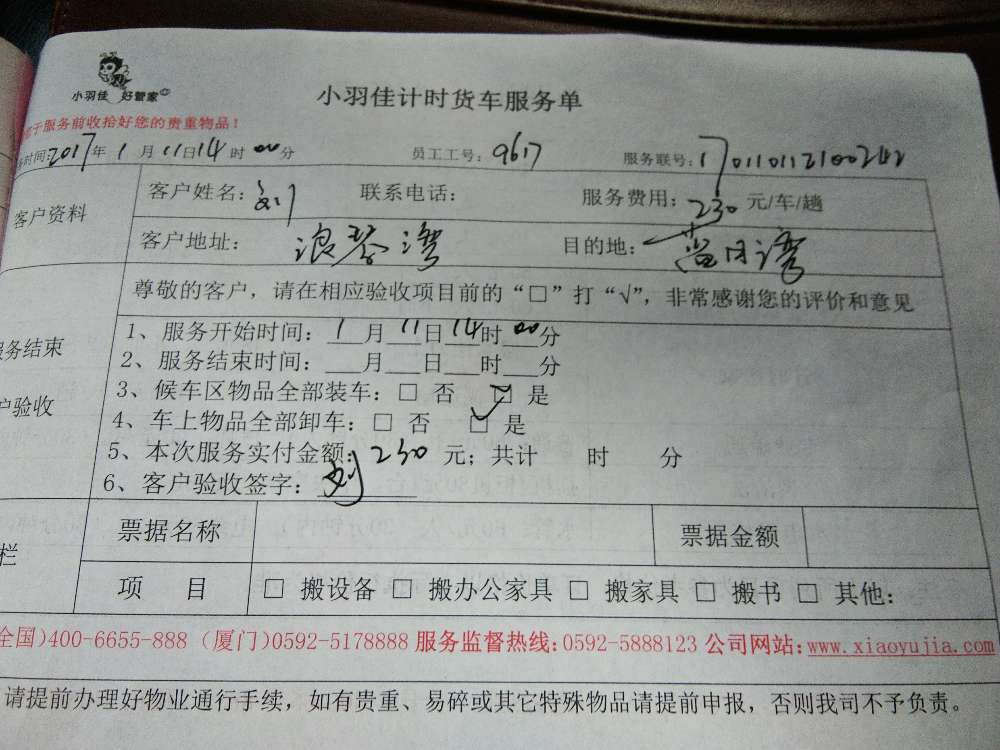 小羽佳 好管家
小羽佳计时货车服务单
于服务前收拾好您的贵重物品！
务时间:2017年1月11日14时00分 员工工号: 9617 服务联号: 170110112100242
客户资料
客户姓名: 刘 联系电话: 服务费用: 230 元/车/趟
客户地址: 浪琴湾 目的地: 蓝月湾
尊敬的客户，请在相应验收项目前的“□”打“√”，非常感谢您的评价和意见
服务结束
户验收
1、服务开始时间: 1月11日14时00分
2、服务结束时间: 月 日 时 分
3、候车区物品全部装车: □ 否 ☑ 是
4、车上物品全部卸车: □ 否 ☑ 是
5、本次服务实付金额: 230 元; 共计 时 分
6、客户验收签字: 刘
栏
票据名称 票据金额
项 目 □ 搬设备 □ 搬办公家具 □ 搬家具 □ 搬书 □ 其他:
全国)400-6655-888 (厦门)0592-5178888 服务监督热线:0592-5888123 公司网站:www.xiaoyujia.com
请提前办理好物业通行手续，如有贵重、易碎或其它特殊物品请提前申报，否则我司不予负责。